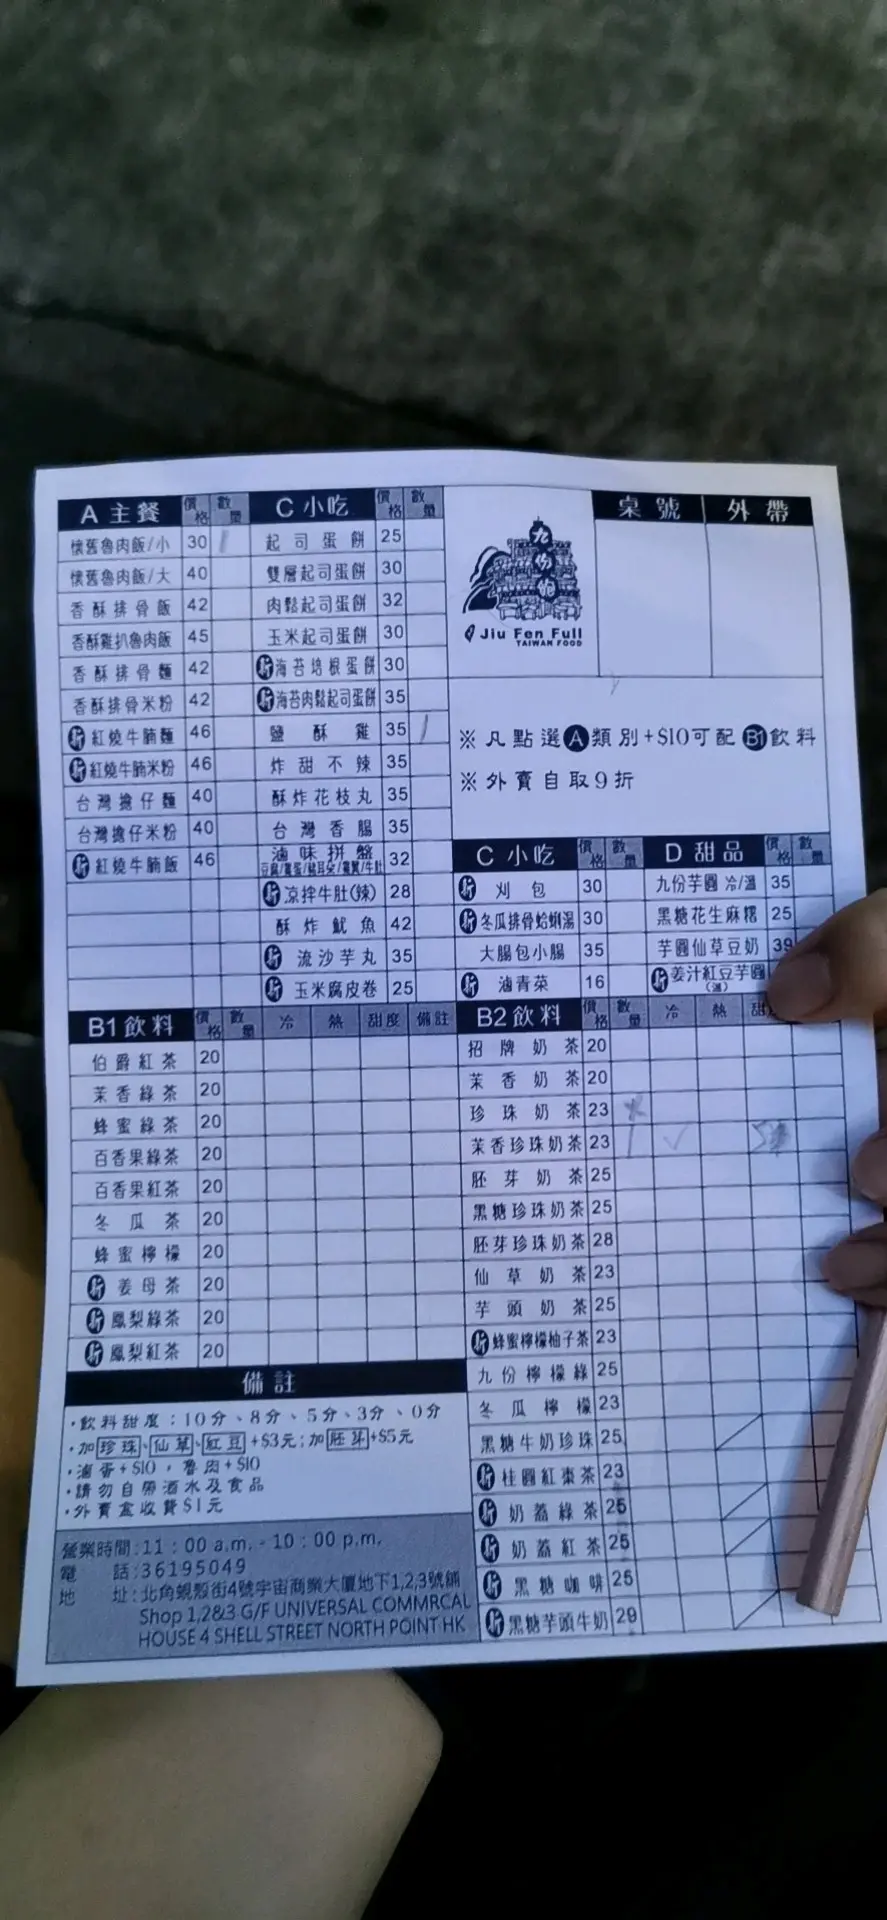 A 主餐 價格 數量
懷舊魯肉飯/小 30 1
懷舊魯肉飯/大 40
香酥排骨飯 42
香酥雞扒魯肉飯 45
香酥排骨麵 42
香酥排骨米粉 42
新 紅燒牛腩麵 46
新 紅燒牛腩米粉 46
台灣擔仔麵 40
台灣擔仔米粉 40
新 紅燒牛腩飯 46
C 小吃 價格 數量
起司蛋餅 25
雙層起司蛋餅 30
肉鬆起司蛋餅 32
玉米起司蛋餅 30
新 海苔培根蛋餅 30
新 海苔肉鬆起司蛋餅 35
鹽酥雞 35 1
炸甜不辣 35
酥炸花枝丸 35
台灣香腸 35
滷味拼盤 32
新 涼拌牛肚(辣) 28
酥炸魷魚 42
新 流沙芋丸 35
新 玉米腐皮卷 25
九份呋
Jiu Fen Full
TAIWAN FOOD
桌號 外帶
※凡點選A類別+$10可配B1飲料
※外賣自取9折
C 小吃 價格 數量
新 刈包 30
新 冬瓜排骨蛤蜊湯 30
大腸包小腸 35
新 滷青菜 16
D 甜品 價格 數量
九份芋圓 冷/溫 35
黑糖花生麻糬 25
芋圓仙草豆奶 39
新 姜汁紅豆芋圓
(溫)
B1飲料 價格 數量 冷 熱 甜度 備註
伯爵紅茶 20
茉香綠茶 20
蜂蜜綠茶 20
百香果綠茶 20
百香果紅茶 20
冬瓜茶 20
蜂蜜檸檬 20
新 姜母茶 20
新 鳳梨綠茶 20
新 鳳梨紅茶 20
B2飲料 價格 數量 冷 熱 甜
招牌奶茶 20
茉香奶茶 20
珍珠奶茶 23
茉香珍珠奶茶 23 1 ✓
胚芽奶茶 25
黑糖珍珠奶茶 25
胚芽珍珠奶茶 28
仙草奶茶 23
芋頭奶茶 25
新 蜂蜜檸檬柚子茶 23
九份檸檬綠 25
冬瓜檸檬 23
黑糖牛奶珍珠 25
新 桂圓紅棗茶 23
新 奶蓋綠茶 25
新 奶蓋紅茶 25
新 黑糖咖啡 25
新 黑糖芋頭牛奶 29
備註
·飲料甜度：10分、8分、5分、3分、0分
·加珍珠、仙草、紅豆+$3元；加胚芽+$5元
·滷蛋+$10，魯肉+$10
·請勿自帶酒水及食品
·外賣盒收費$1元
營業時間:11：00 a.m. - 10：00 p.m.
電話:36195049
地址:北角蜆殼街4號宇宙商業大廈地下1,2,3號舖
Shop 1,2&3 G/F UNIVERSAL COMMRCAL
HOUSE 4 SHELL STREET NORTH POINT HK